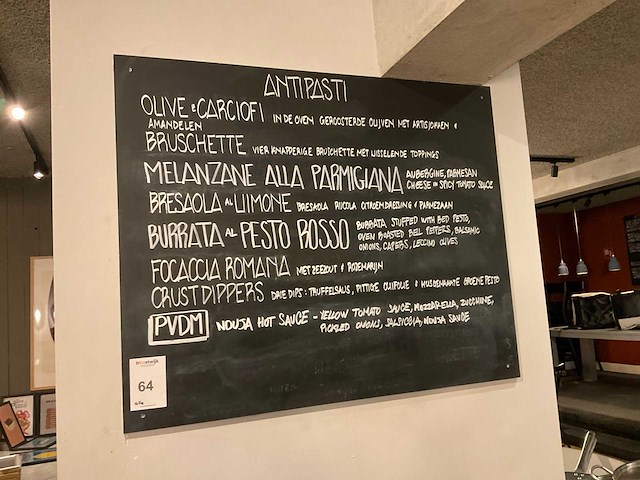 ANTIPASTI
OLIVE e CARCIOFI IN DE OVEN GEROOSTERDE OLIJVEN MET ARTISJOKKEN &
AMANDELEN
BRUSCHETTE VIER KNAPPERIGE BRUSCHETTE MET WISSELENDE TOPPINGS
MELANZANE ALLA PARMIGIANA AUBERGINE, PARMESAN
CHEESE SPICY TOMATO SAUCE
BRESAOLA AL LIMONE BRESAOLA RUCOLA CITROENDRESSING & PARMEZAAN
BURRATA AL PESTO ROSSO BURRATA STUFFED WITH RED PESTO,
OVEN ROASTED BELL PEPPERS, BALSAMIC
ONIONS, CAPERS, LECCINO OLIVES
FOCACCIA ROMANA MET ZEEZOUT & ROZEMARIJN
CRUSTDIPPERS DRIE DIPS: TRUFFELSAUS, PITTIGE OLIFOLIE & HUISGEMAAKTE GROENE PESTO
PVDM NDUJA HOT SAUCE - YELLOW TOMATO SAUCE, MOZZARELLA, ZUCCHINE,
PICKLED ONIONS, SALSICCIA, NDUJA SAUCE
64